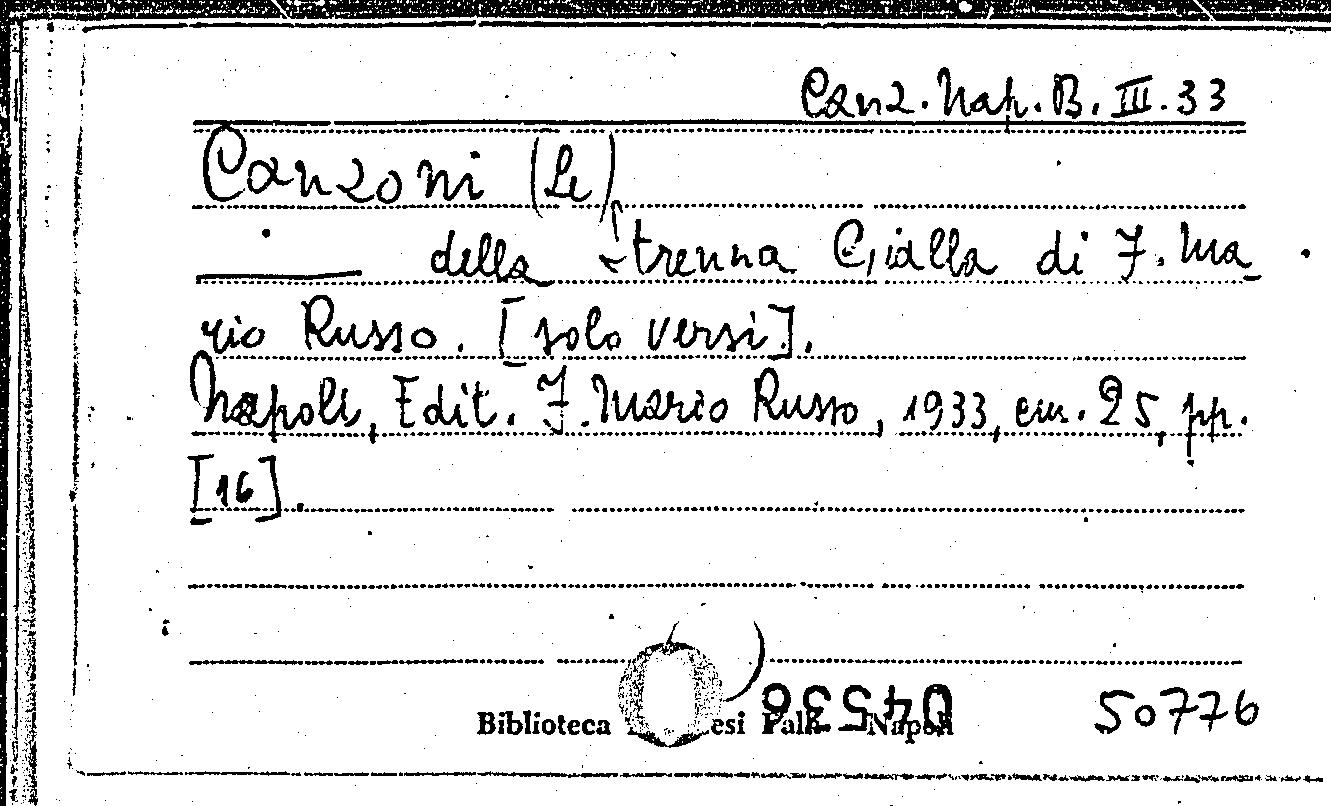 Canz. Nap. B. III. 33
Canzoni (Le)
della strenna Gialla di F. Ma-
rio Russo. [solo versi].
Napoli, Edit. F. Mario Russo, 1933, cm. 25, pp.
[16].
Biblioteca Napoli
04536
50776